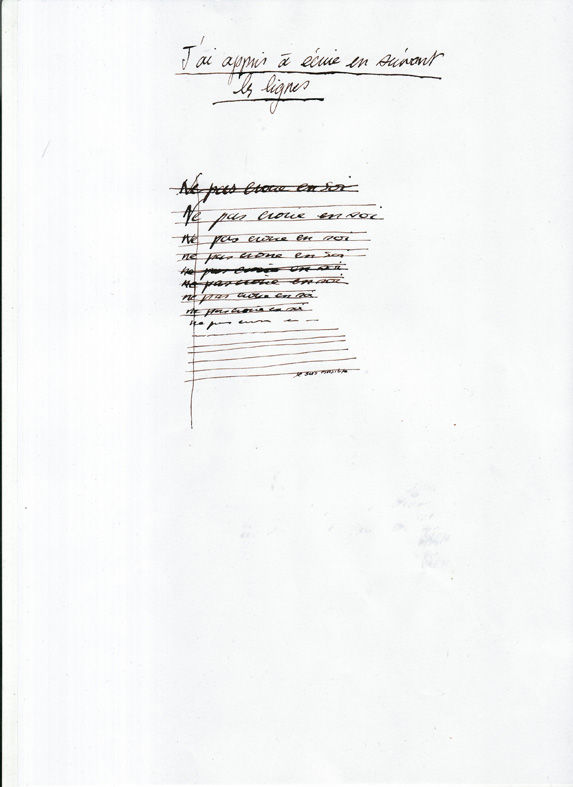 J'ai appris à écrire en suivant
les lignes
Ne pas croire en soi
Ne pas croire en soi
Ne pas croire en soi
ne pas croire en soi
ne pas croire en soi
Ne pas croire en soi
ne pas croire en soi
ne pas croire en soi
ne pas